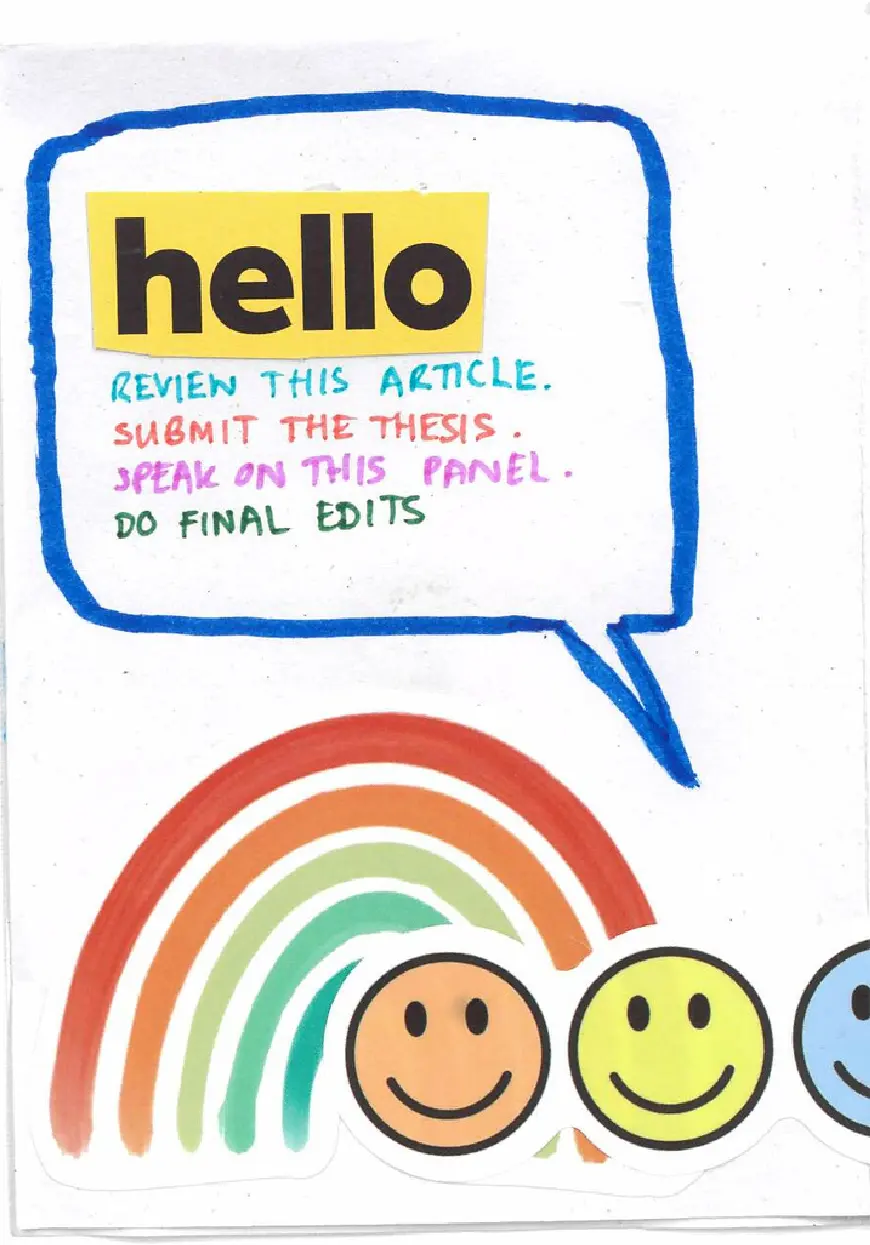 hello
REVIEW THIS ARTICLE.
SUBMIT THE THESIS.
SPEAK ON THIS PANEL.
DO FINAL EDITS